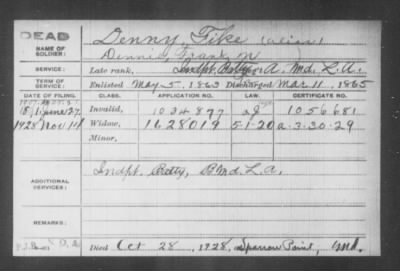 DEAD
NAME OF SOLDIER:
Denny, Fike (alias)
Dennis, Frank M
SERVICE:
Late rank, Indpt. Batty A, Md. L. A.
TERM OF SERVICE:
Enlisted May 5, 1863 Discharged Mar 11, 1865
DATE OF FILING. CLASS. APPLICATION NO. LAW. CERTIFICATE NO.
June 27 Invalid, 1034897 1056681
1928 Nov 14 Widow, 1628019 5-1-20 a-3-30-29
Minor.
ADDITIONAL SERVICES:
Indpt. Batty, B Md. L. A.
REMARKS:
Died Oct 28, 1928, at Sparrow Point, Md.